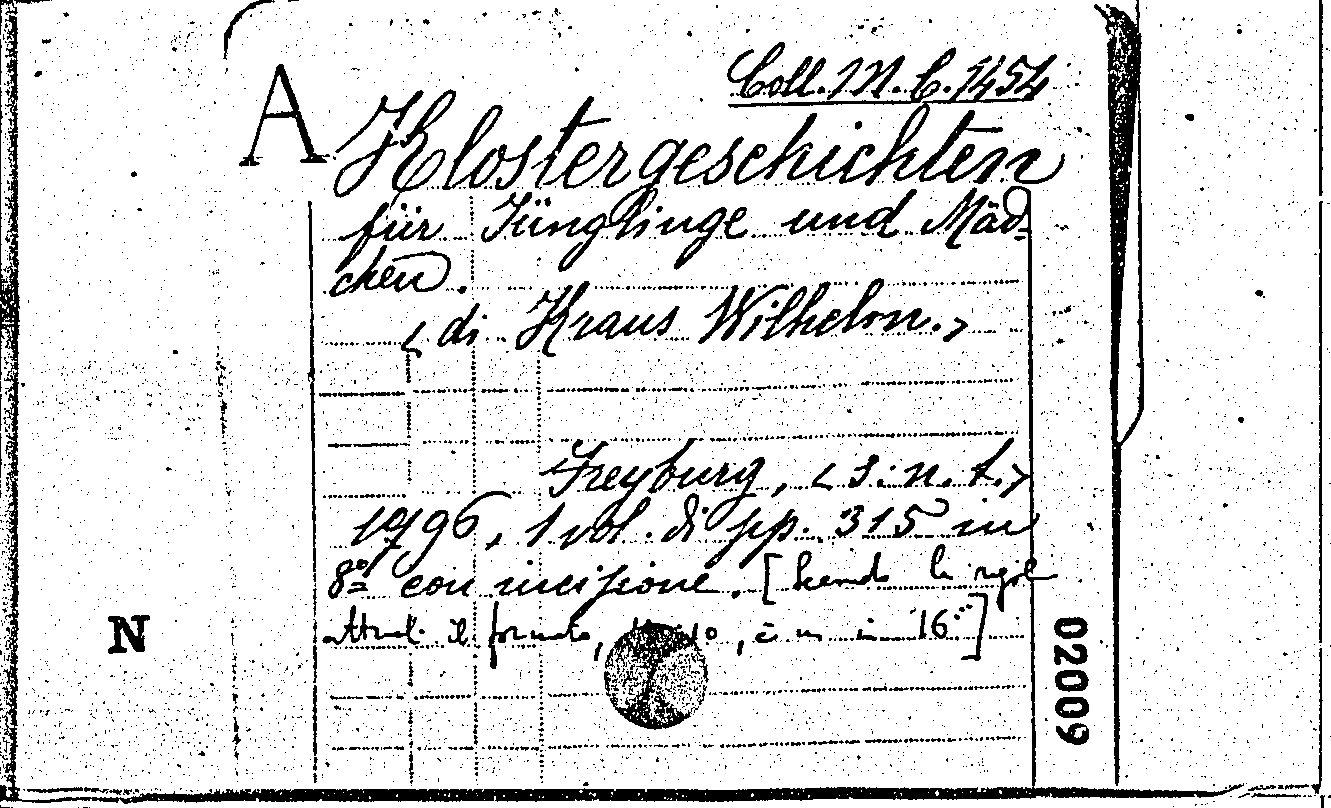 Coll. M. C. 1454
A Klostergeschichten
für Jünglinge und Mäd-
chen.
< di Kraus Wilhelm. >
Freyburg, < s. n. t. >
1796, 1 vol. di pp. 315 in
8º con incisione. [ le
il formato, , è in 16º ]
N
02009